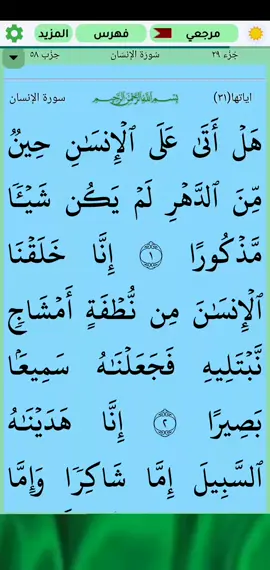 المزيد فهرس مرجعي
جزء ٢٩ سورة الإنسان حزب ٥٨
اياتها(٣١) بسم الله الرحمن الرحيم سورة الإنسان
هَلۡ أَتَىٰ عَلَى ٱلۡإِنسَٰنِ حِينٞ
مِّنَ ٱلدَّهۡرِ لَمۡ يَكُن شَيۡـٔٗا
مَّذۡكُورًا ١ إِنَّا خَلَقۡنَا
ٱلۡإِنسَٰنَ مِن نُّطۡفَةٍ أَمۡشَاجٖ
نَّبۡتَلِيهِ فَجَعَلۡنَٰهُ سَمِيعَۢا
بَصِيرًا ٢ إِنَّا هَدَيۡنَٰهُ
ٱلسَّبِيلَ إِمَّا شَاكِرٗا وَإِمَّا